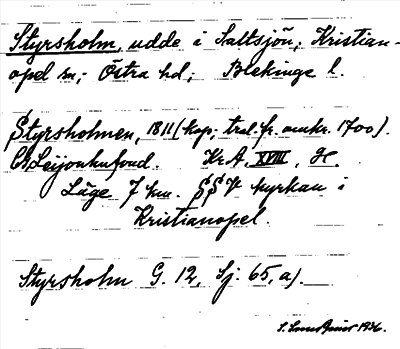 Styrsholm, udde i Saltsjön, Kristian-
opel sn; Östra hd; Blekinge l.
Styrsholmen, 1811 (kop; trol. fr. omkr. 1700).
CG Leijonhufvud. Kr A, XVIII, H.
Läge 7 km. SSV kyrkan i
Kristianopel.
Styrsholm G. 12, Sj. 65, a).
1936.